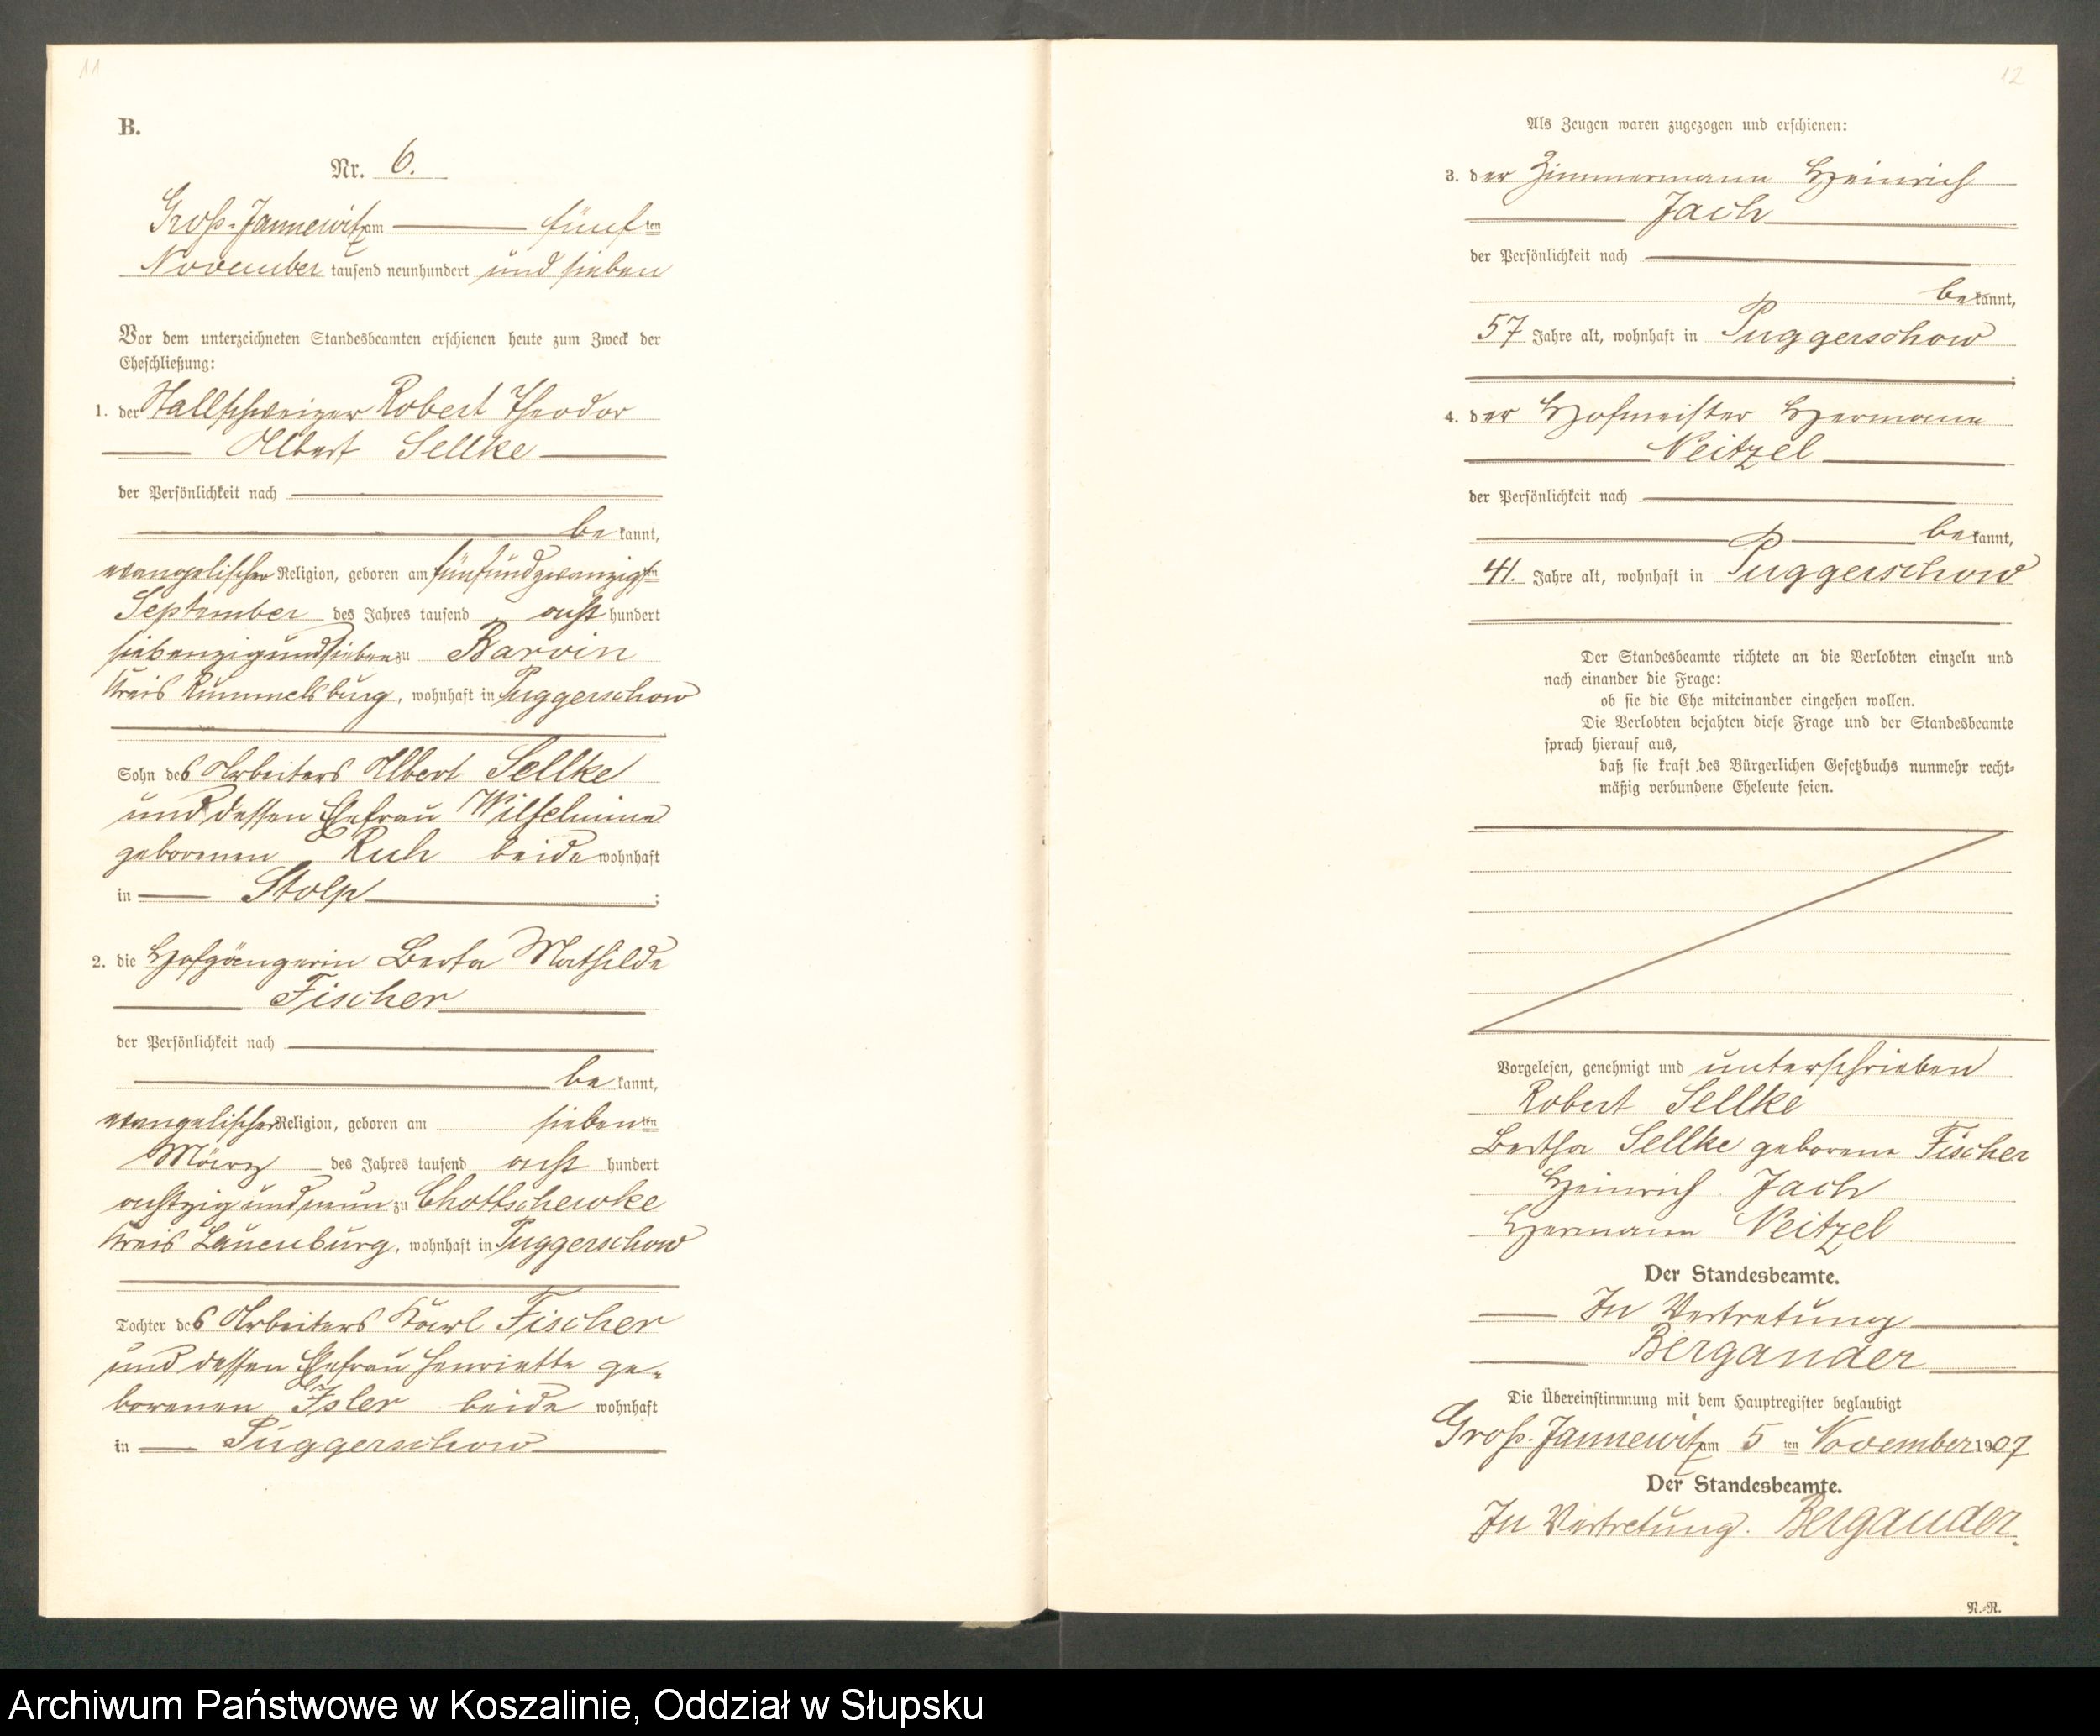 11
B.
Nr. 6.
Groß-Jannewitz am fünften
November tausend neunhundert und sieben
Vor dem unterzeichneten Standesbeamten erschienen heute zum Zweck der
Eheschließung:
1. der Stallschweizer Robert Theodor
Albert Sellke
der Persönlichkeit nach
bekannt,
evangelischer Religion, geboren am fünfundzwanzigsten
September des Jahres tausend achthundert
siebenzigundsieben zu Barvin
Kreis Rummelsburg, wohnhaft in Puggerschow
Sohn des Arbeiters Albert Sellke
und dessen Ehefrau Wilhelmine
geborenen Ruh beide wohnhaft
in Stolp ;
2. die Hofgängerin Berta Mathilde
Fischer
der Persönlichkeit nach
bekannt,
evangelischer Religion, geboren am siebenten
März des Jahres tausend acht hundert
achtzig und neun zu Chottschewke
Kreis Lauenburg, wohnhaft in Puggerschow
Tochter des Arbeiters Karl Fischer
und dessen Ehefrau Henriette ge-
borenen Isler beide wohnhaft
in Puggerschow
12
Als Zeugen waren zugezogen und erschienen:
3. der Zimmermann Heinrich
Jach
der Persönlichkeit nach
bekannt,
57 Jahre alt, wohnhaft in Puggerschow
;
4. der Hofmeister Hermann
Neitzel
der Persönlichkeit nach
bekannt,
41. Jahre alt, wohnhaft in Puggerschow
Der Standesbeamte richtete an die Verlobten einzeln und
nach einander die Frage:
ob sie die Ehe miteinander eingehen wollen.
Die Verlobten bejahten diese Frage und der Standesbeamte
sprach hierauf aus,
daß sie kraft des Bürgerlichen Gesetzbuchs nunmehr recht-
mäßig verbundene Eheleute seien.
Vorgelesen, genehmigt und unterschrieben
Robert Sellke
Bertha Sellke geborene Fischer
Heinrich Jach
Hermann Neitzel
Der Standesbeamte.
In Vertretung
Bergander
Die Übereinstimmung mit dem Hauptregister beglaubigt
Groß-Jannewitz am 5 ten November 1907
Der Standesbeamte.
In Vertretung. Bergander.
N.-R.
Archiwum Państwowe w Koszalinie, Oddział w Słupsku